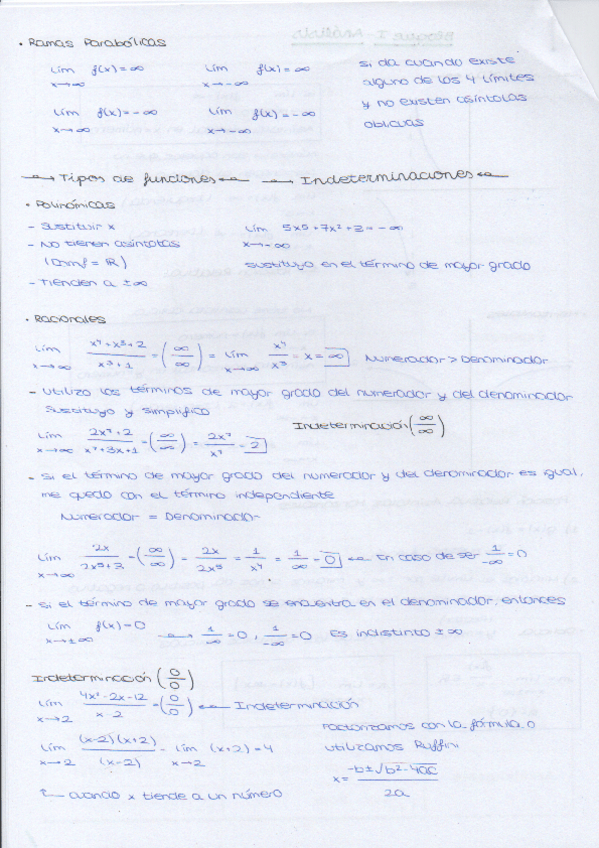 • Ramas Parabólicas
lím x→∞ f(x) = ∞   lím x→-∞ f(x) = ∞   si da cuando existe
alguno de los 4 límites
lím x→∞ f(x) = -∞   lím x→-∞ f(x) = -∞   y no existen asíntotas
oblicuas
→ Tipos de funciones ←   → Indeterminaciones ←
• Polinómicas
- Sustituir x   lím x→-∞ 5x⁵ + 7x² + 2 = -∞
- No tienen asíntotas
(Dom f = ℝ)   sustituyo en el término de mayor grado
- Tienden a ±∞
• Racionales
lím x→∞ = (∞/∞) = lím x→∞ = x = ∞   Numerador > Denominador
- Utilizo los términos de mayor grado del numerador y del denominador
sustituyo y simplifico   Indeterminación (∞/∞)
lím x→∞ = (∞/∞) = = 2
- Si el término de mayor grado del numerador y del denominador es igual,
me quedo con el término independiente
Numerador = Denominador
lím x→∞ 2x/2x⁵+3 = (∞/∞) = 2x/2x⁵ = 1/x⁴ = 1/∞ = 0 ← En caso de ser 1/-∞ = 0
- Si el término de mayor grado se encuentra en el denominador, entonces
lím x→±∞ f(x) = 0   → 1/∞ = 0, 1/-∞ = 0   Es indistinto ±∞
Indeterminación (0/0)
lím x→2 4x²-2x-12/x-2 = (0/0) ← Indeterminación
Factorizamos con la fórmula o
lím x→2 (x-2)(x+2)/(x-2) = lím x→2 (x+2) = 4   utilizamos Ruffini
x = -b±√b²-4ac/2a
cuando x tiende a un número